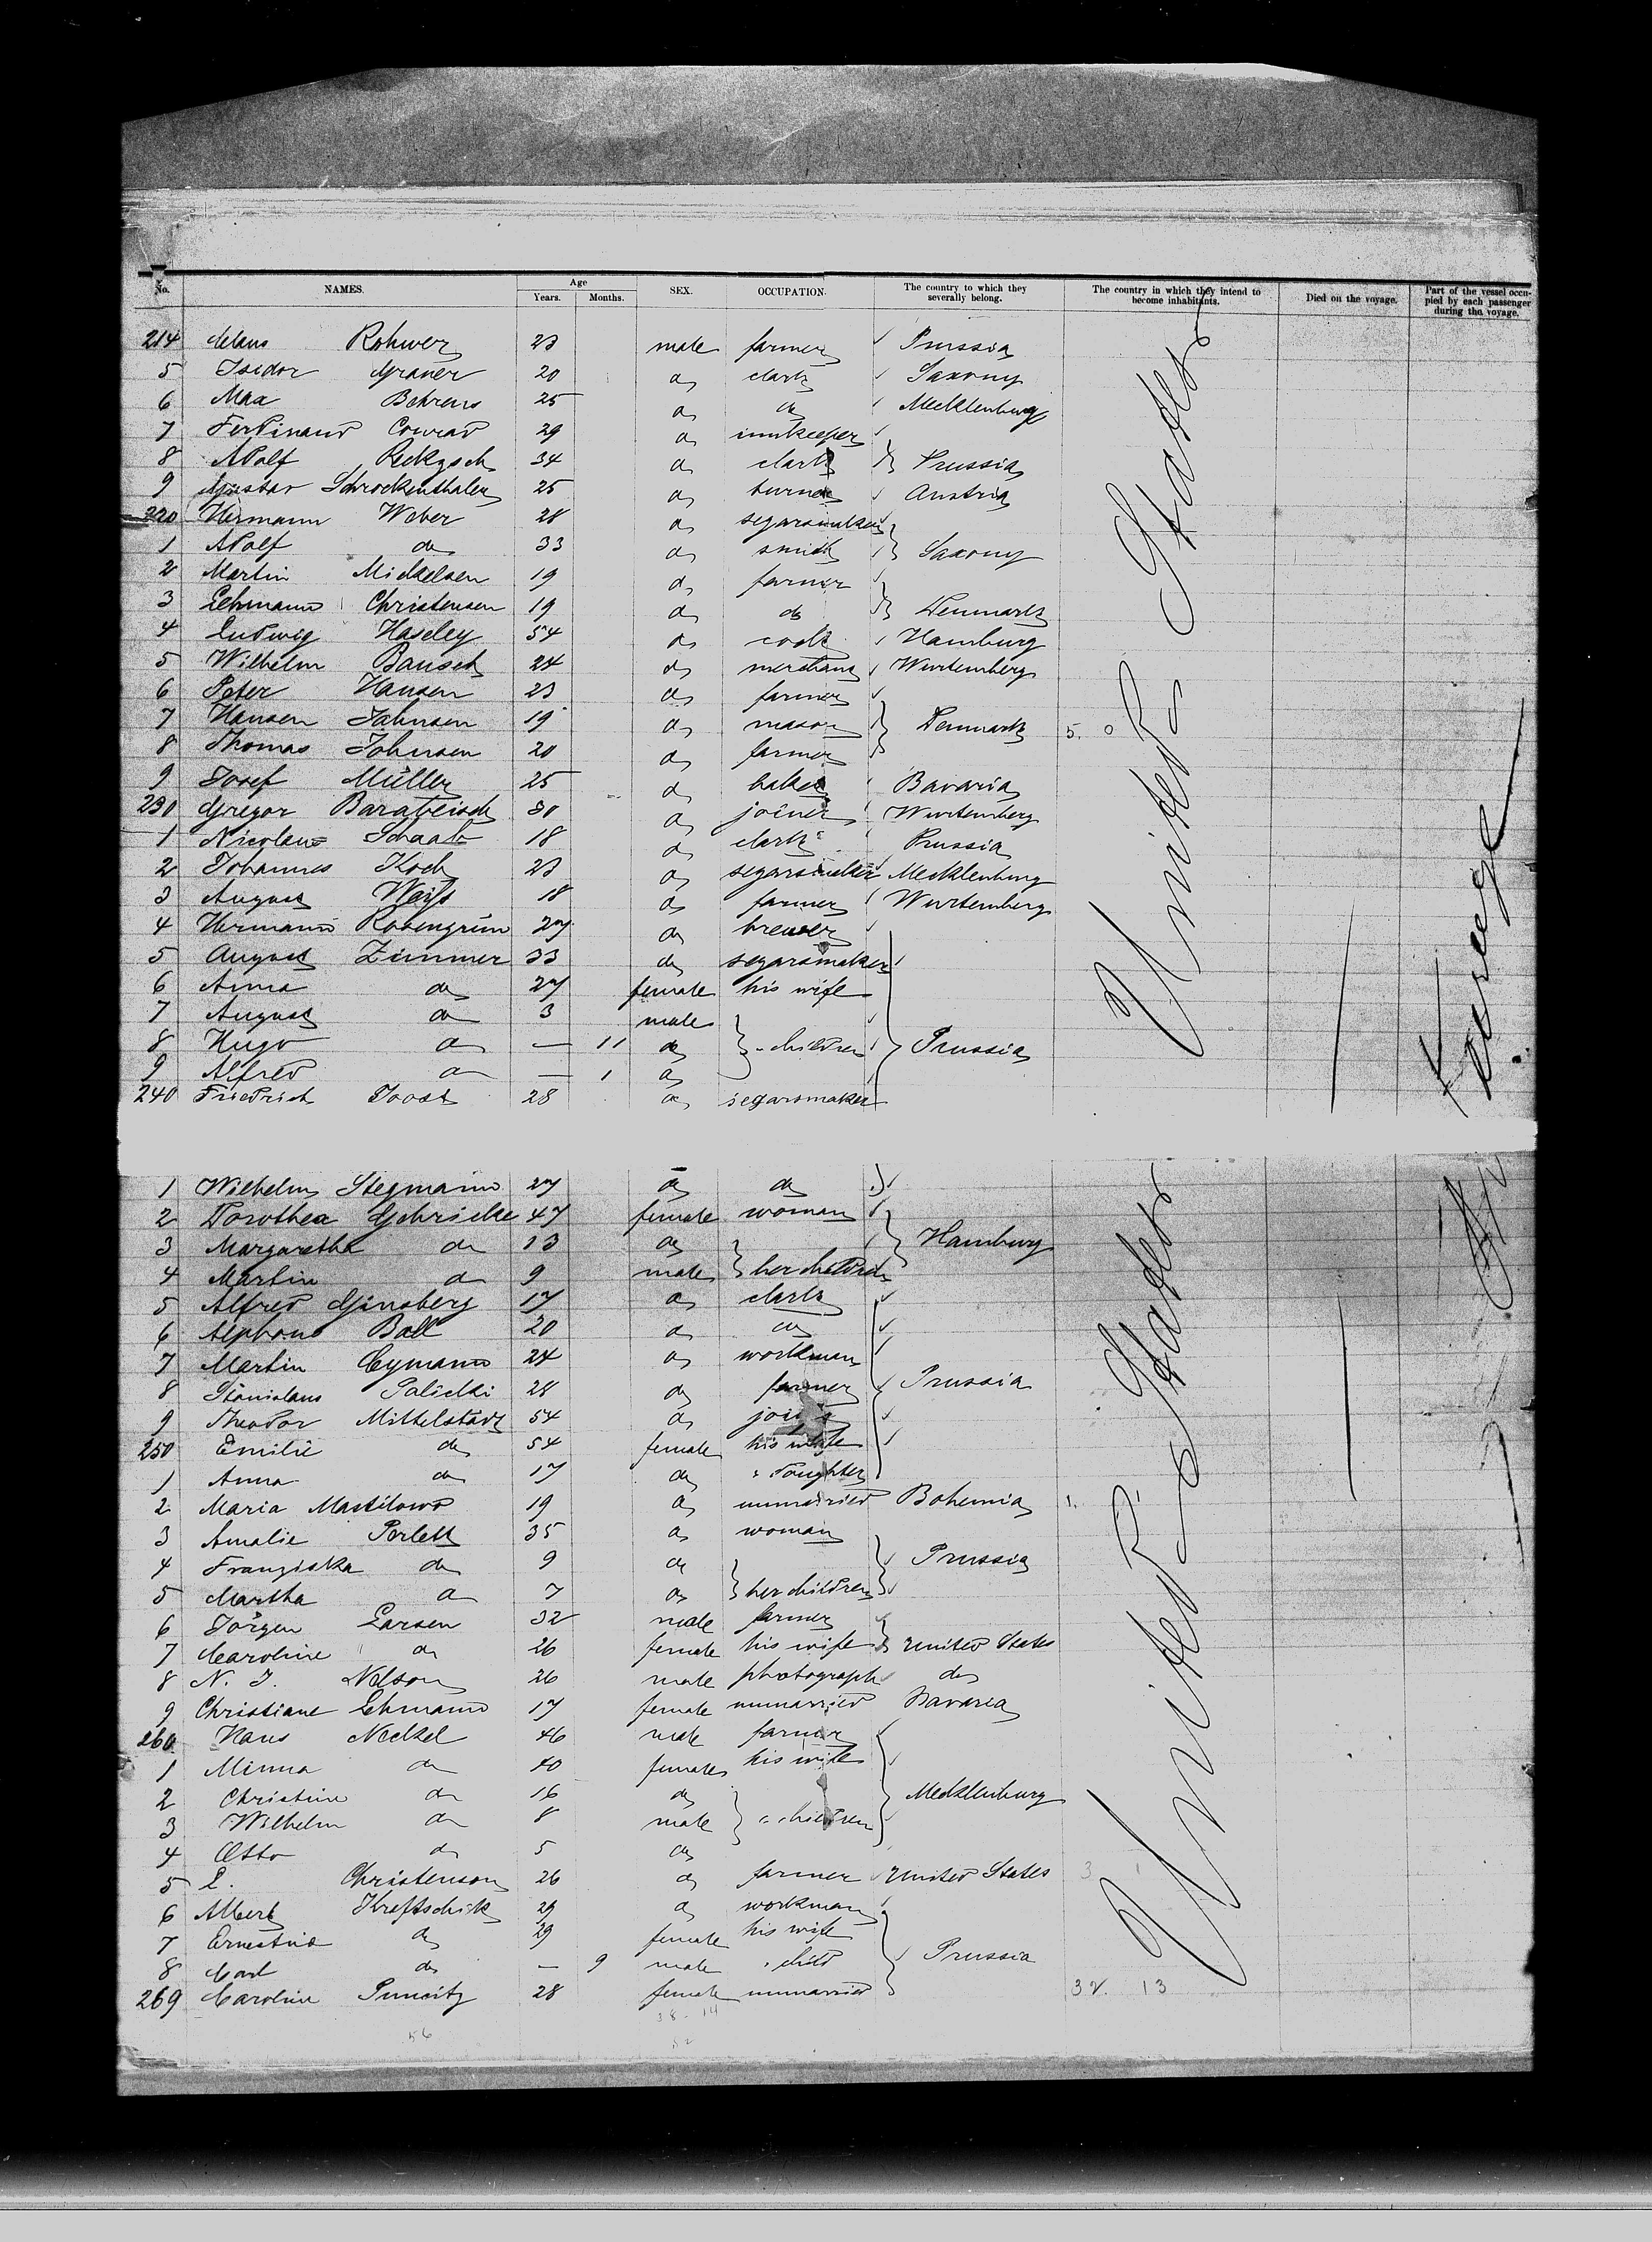 No. NAMES. Age Years. Months. SEX. OCCUPATION. The country to which they severally belong. The country in which they intend to become inhabitants. Died on the voyage. Part of the vessel occupied by each passenger during the voyage.
214 Claus Rohwer 23 male farmer Prussia
5 Isidor Graner 20 do clark Saxony
6 Max Behrens 25 do do Mecklenburg
7 Ferdinand Conrad 29 do innkeeper
8 Adolf 34 do clark Prussia
9 Gustav Schrockenthaler 25 do turner Austria
220 Hermann Weber 28 do segarsmaker
1 Adolf do 33 do smith Saxony
2 Martin Mickelsen 19 do farmer
3 Lehmann Christensen 19 do do Denmark
4 Ludwig Haseley 54 do cook Hamburg
5 Wilhelm Bausch 24 do merchant Wurtemberg
6 Peter Hansen 23 do farmer
7 Hansen Jahnsen 19 do mason Denmark 5. 0
8 Thomas Johnsen 20 do farmer
9 Josef Müller 25 do baker Bavaria
230 Gregor 30 do joiner Wurtemberg
1 Nicolaus Schaab 18 do clark Prussia
2 Johannes Koch 23 do segarsmaker Mecklenburg
3 August Weiß 18 do farmer Wurtemberg
4 Hermann Rosengrün 27 do brewer
5 August Zimmer 33 do segarsmaker
6 Anna do 27 female his wife
7 August do 3 male
8 Hugo do — 11 do " children Prussia
9 Alfred do — 1 do
240 Friedrich Joost 28 do segarsmaker
United States
Steerage
1 Wilhelm Stegmann 27 do do
2 Dorothea Gehricke 47 female woman
3 Margaretha do 13 do Hamburg
4 Martin do 9 male her children
5 Alfred Ginsberg 17 do clark
6 Alphons Ball 20 do do
7 Martin Cymann 24 do workman
8 Stanislaus Palicki 28 do farmer Prussia
9 Theodor Mittelstädt 54 do joiner
250 Emilie do 54 female his wife
1 Anna do 17 do " Doughter
2 Maria 19 do unmarried Bohemia 1.
3 Amalie 35 do woman
4 Franziska do 9 do Prussia
5 Martha do 7 do her children
6 Jörgen Larsen 32 male farmer
7 Caroline do 26 female his wife United States
8 N. J. Nelson 26 male photograph do
9 Christiane Lehmann 17 female unmarried Bavaria
260 Hans Neckel 46 male farmer
1 Minna do 40 female his wife
2 Christine do 16 do Mecklenburg
3 Wilhelm do 8 male " children
4 Otto do 5 do
5 L. Christenson 26 do farmer United States 3 1
6 Albert 29 do workman
7 Ernestine do 29 female his wife
8 Carl do — 9 male " child Prussia
269 Caroline 28 female unmarried 32. 13
United States
56 38 - 14
52